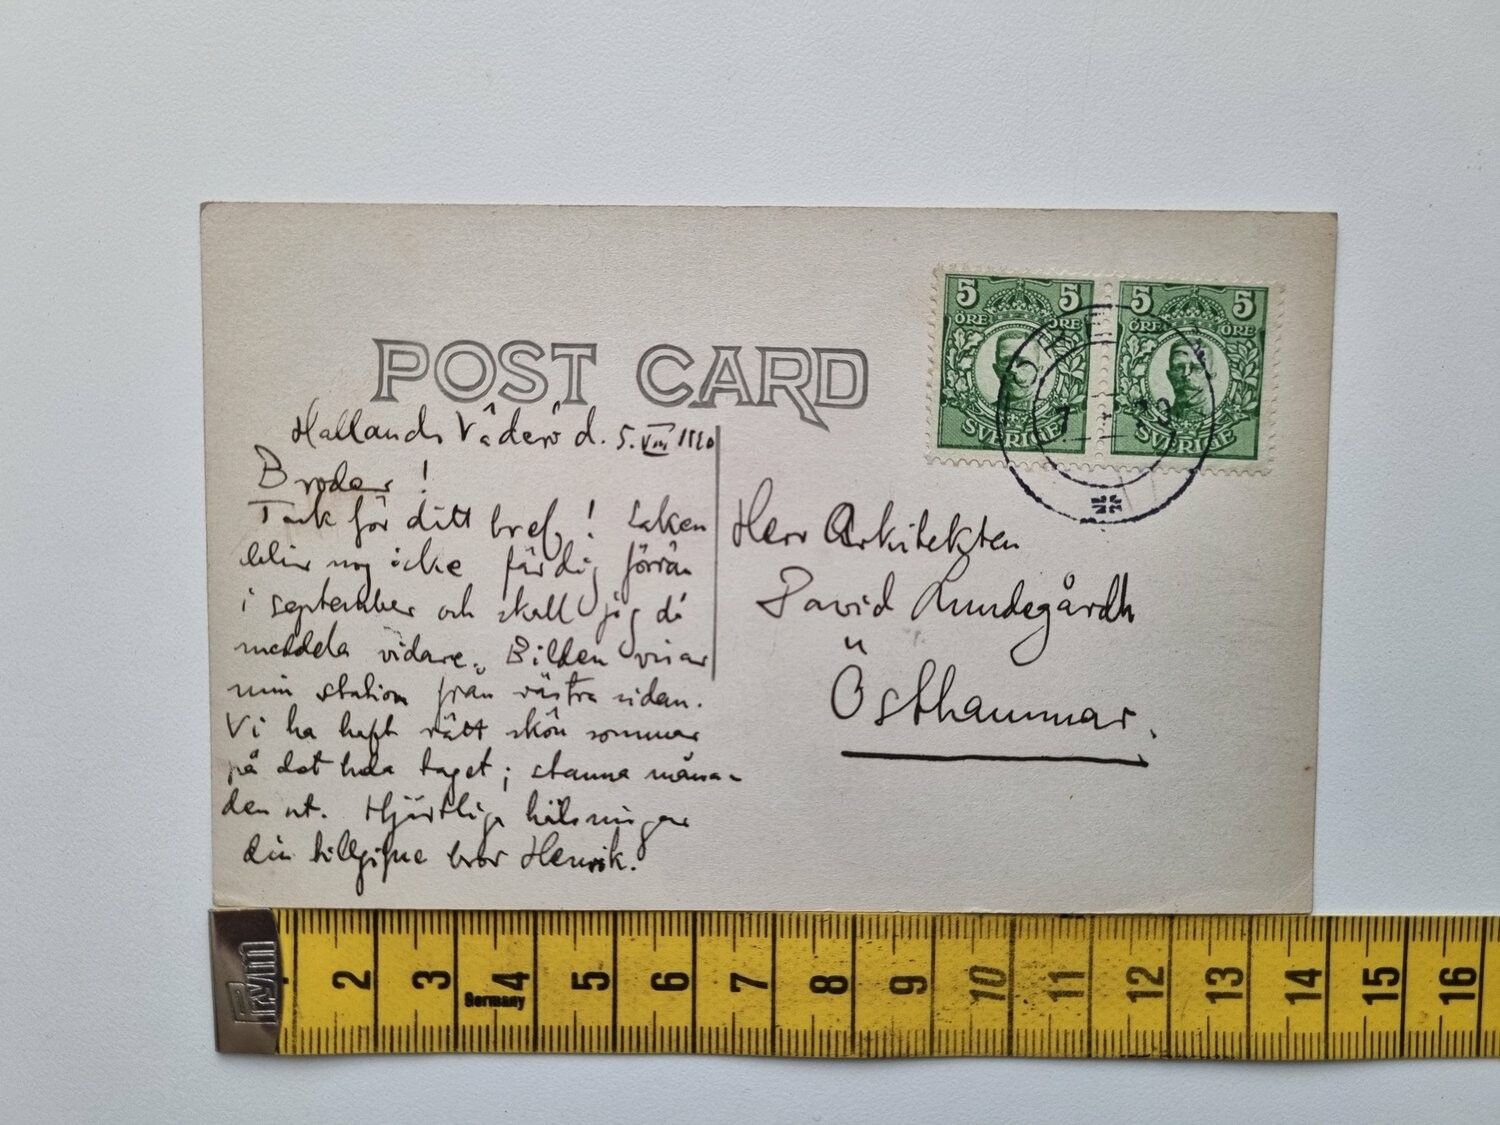 POST CARD
5 5 5 5
ÖRE ÖRE ÖRE ÖRE
SVERIGE SVERIGE
Hallands Väderö d. 5. VIII
Broder!
Tack för ditt bref! Saken
blir nog icke färdig förrän
i september och skall jag då
meddela vidare. Bilden visar
min station från västra sidan.
Vi ha haft rätt skön sommar
på det hela taget; stanna måna-
den ut. Hjärtliga hälsningar
din tillgifne bror Henrik.
Herr Arkitekten
David Lundegårdh
Östhammar.
Prym
2 3 4 5 6 7 8 9 10 11 12 13 14 15 16
Germany